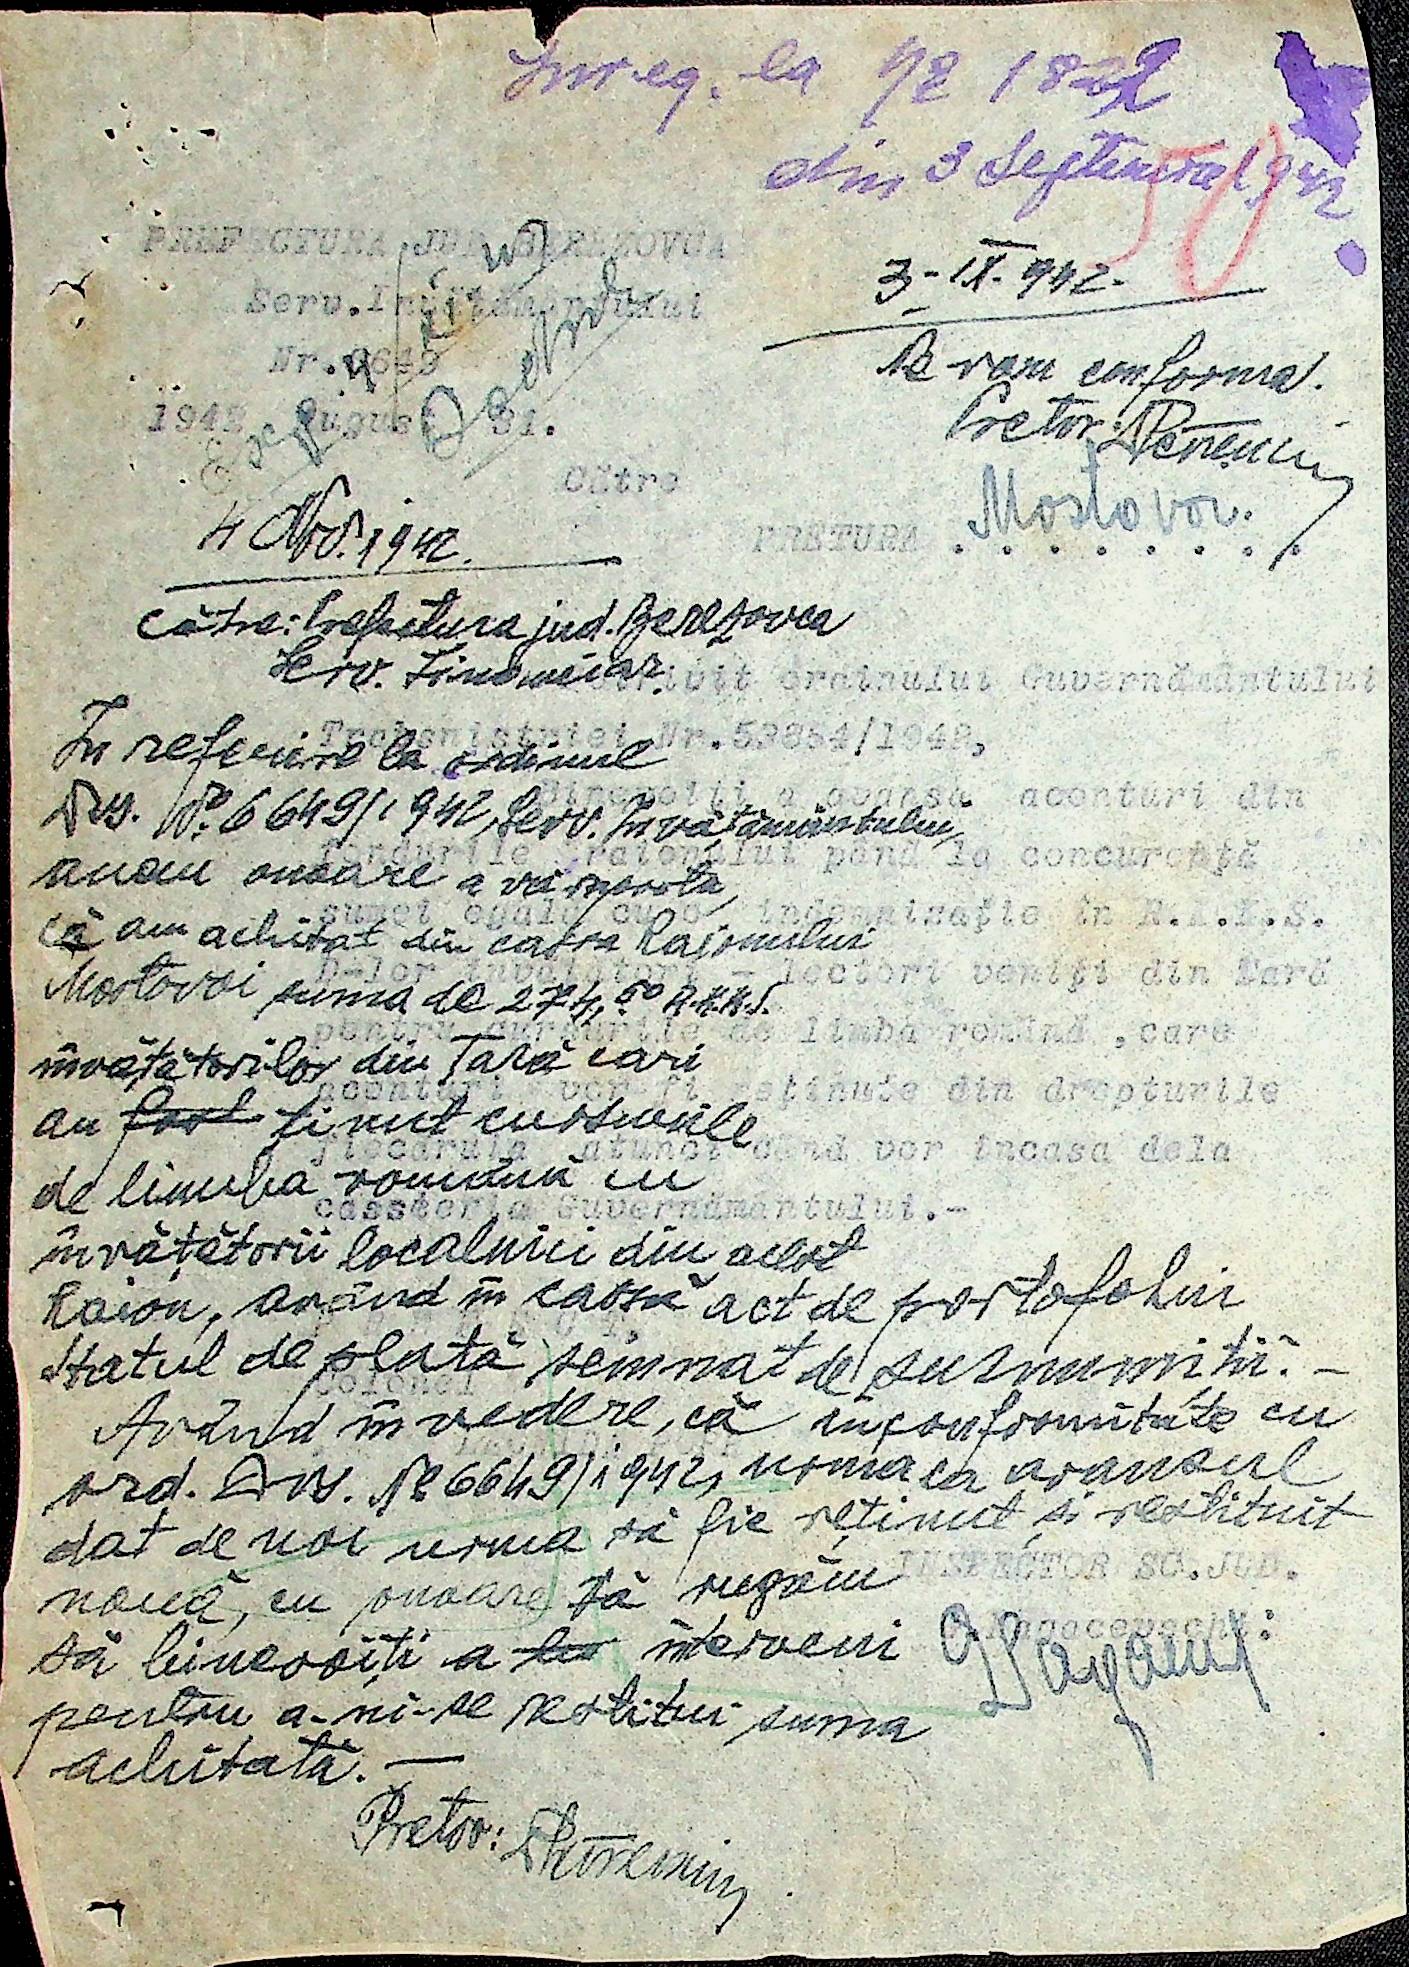 Înreg. la № 1822
din 3 Septemvrie 1942
50
PREFECTURA JUD. BEREZOVCA
Serv. Învățământului
Nr. 6649
1942 August 31.
3-IX-942.
Se vom conforma.
Pretor:
Către
PRETURA Mostovoi.
4 Nov. 1942.
Către: Prefectura jud. Berezovca
Serv. Financiar
Potrivit ordinului Guvernământului
Transnistriei Nr. 52854/1942,
Binevoiți a avansa aconturi din
fondurile raionului până la concurența
sumei egale cu o indemnizație în R.K.K.S.
D-lor învățători - lectori veniți din Țară
pentru cursurile de limba română, care
aconturi vor fi reținute din drepturile
fiecăruia atunci când vor încasa dela
cassieria Guvernământului.-
Colonel
INSPECTOR SC. JUD.
În referire la ordinul
Dvs. № 6649/1942, Serv. Învățământului,
avem onoare a vă raporta,
că am achitat din cassa Raionului
Mostovoi suma de 274,50 R.K.K.S.
învățătorilor din Țară cari
au fost ținut cursurile
de limba română cu
învățătorii localnici din acest
Raion, având în cassă act de portofoliu
statul de plată semnat de susnumiții.-
Având în vedere, că în conformitate cu
ord. Dvs. № 6649/1942, urma ca avansul
dat de noi urma să fie reținut și restituit
nouă, cu onoare Vă rugăm
să binevoiți a interveni
pentru a-ni-se restitui suma
achitată.-
Pretor: